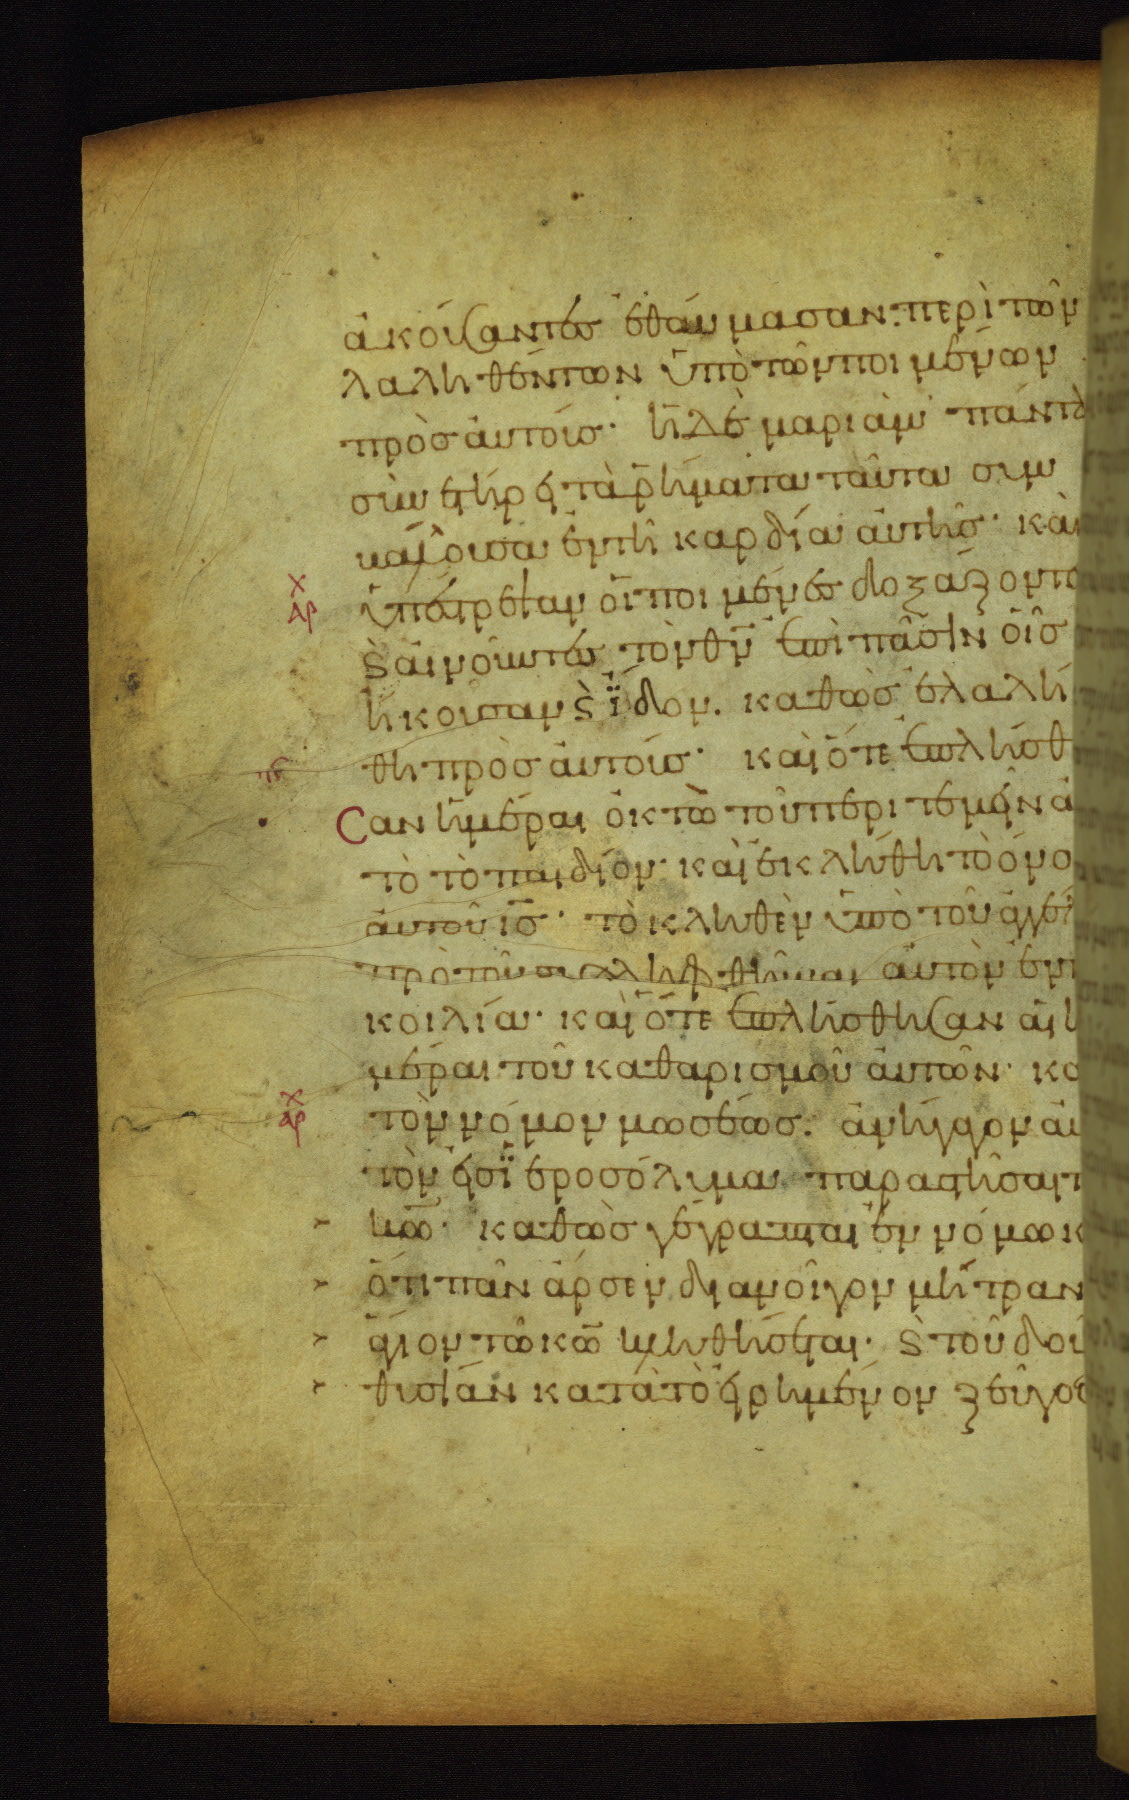 ἀκούσαντες ἐθαύμασαν· περὶ τῶν
λαληθέντων ὑπὸ τῶν ποιμένων
πρὸς αὐτούς· ἡ δὲ μαριὰμ πάντα
συνετήρει τὰ ῥήματα ταῦτα συμ
βάλλουσα ἐν τῆ καρδία αὐτῆς· καὶ
ὑπέστρεψαν οἱ ποιμένες δοξάζοντε
ϗ αἰνοῦντες τὸν θν ἐπὶ πᾶσιν οἷς
ἤκουσαν ϗ ἴδον. καθὼς ἐλαλή
θη πρὸς αὐτούς· καὶ ὅτε ἐπλήσθ
Σαν ἡμέραι ὀκτὼ τοῦ περιτεμεῖν ἀ
τὸ τὸ παιδίον· καὶ ἐκλήθη τὸ ὄνο
αὐτοῦ ις· τὸ κληθὲν ὑπὸ τοῦ ἀγγέλ
πρὸ τοῦ συλληφθῆναι αὐτὸν ἐν τ
κοιλία· καὶ ὅτε ἐπλήσθησαν αἱ ἡ
μέραι τοῦ καθαρισμοῦ αὐτῶν· κα
τὸν νόμον μωσέως. ἀνήγαγον αὐ
τὸν εἰς ἱεροσόλυμα παραστῆσαι τ
κω· καθὼς γέγραπται ἐν νόμω κ
ὅτι πᾶν ἄρσεν διανοῖγον μήτραν
ἅγιον τῶ κω κληθήσεται· ϗ τοῦ δοῦ
θυσίαν κατὰ τὸ εἰρημένον ζεῦγος